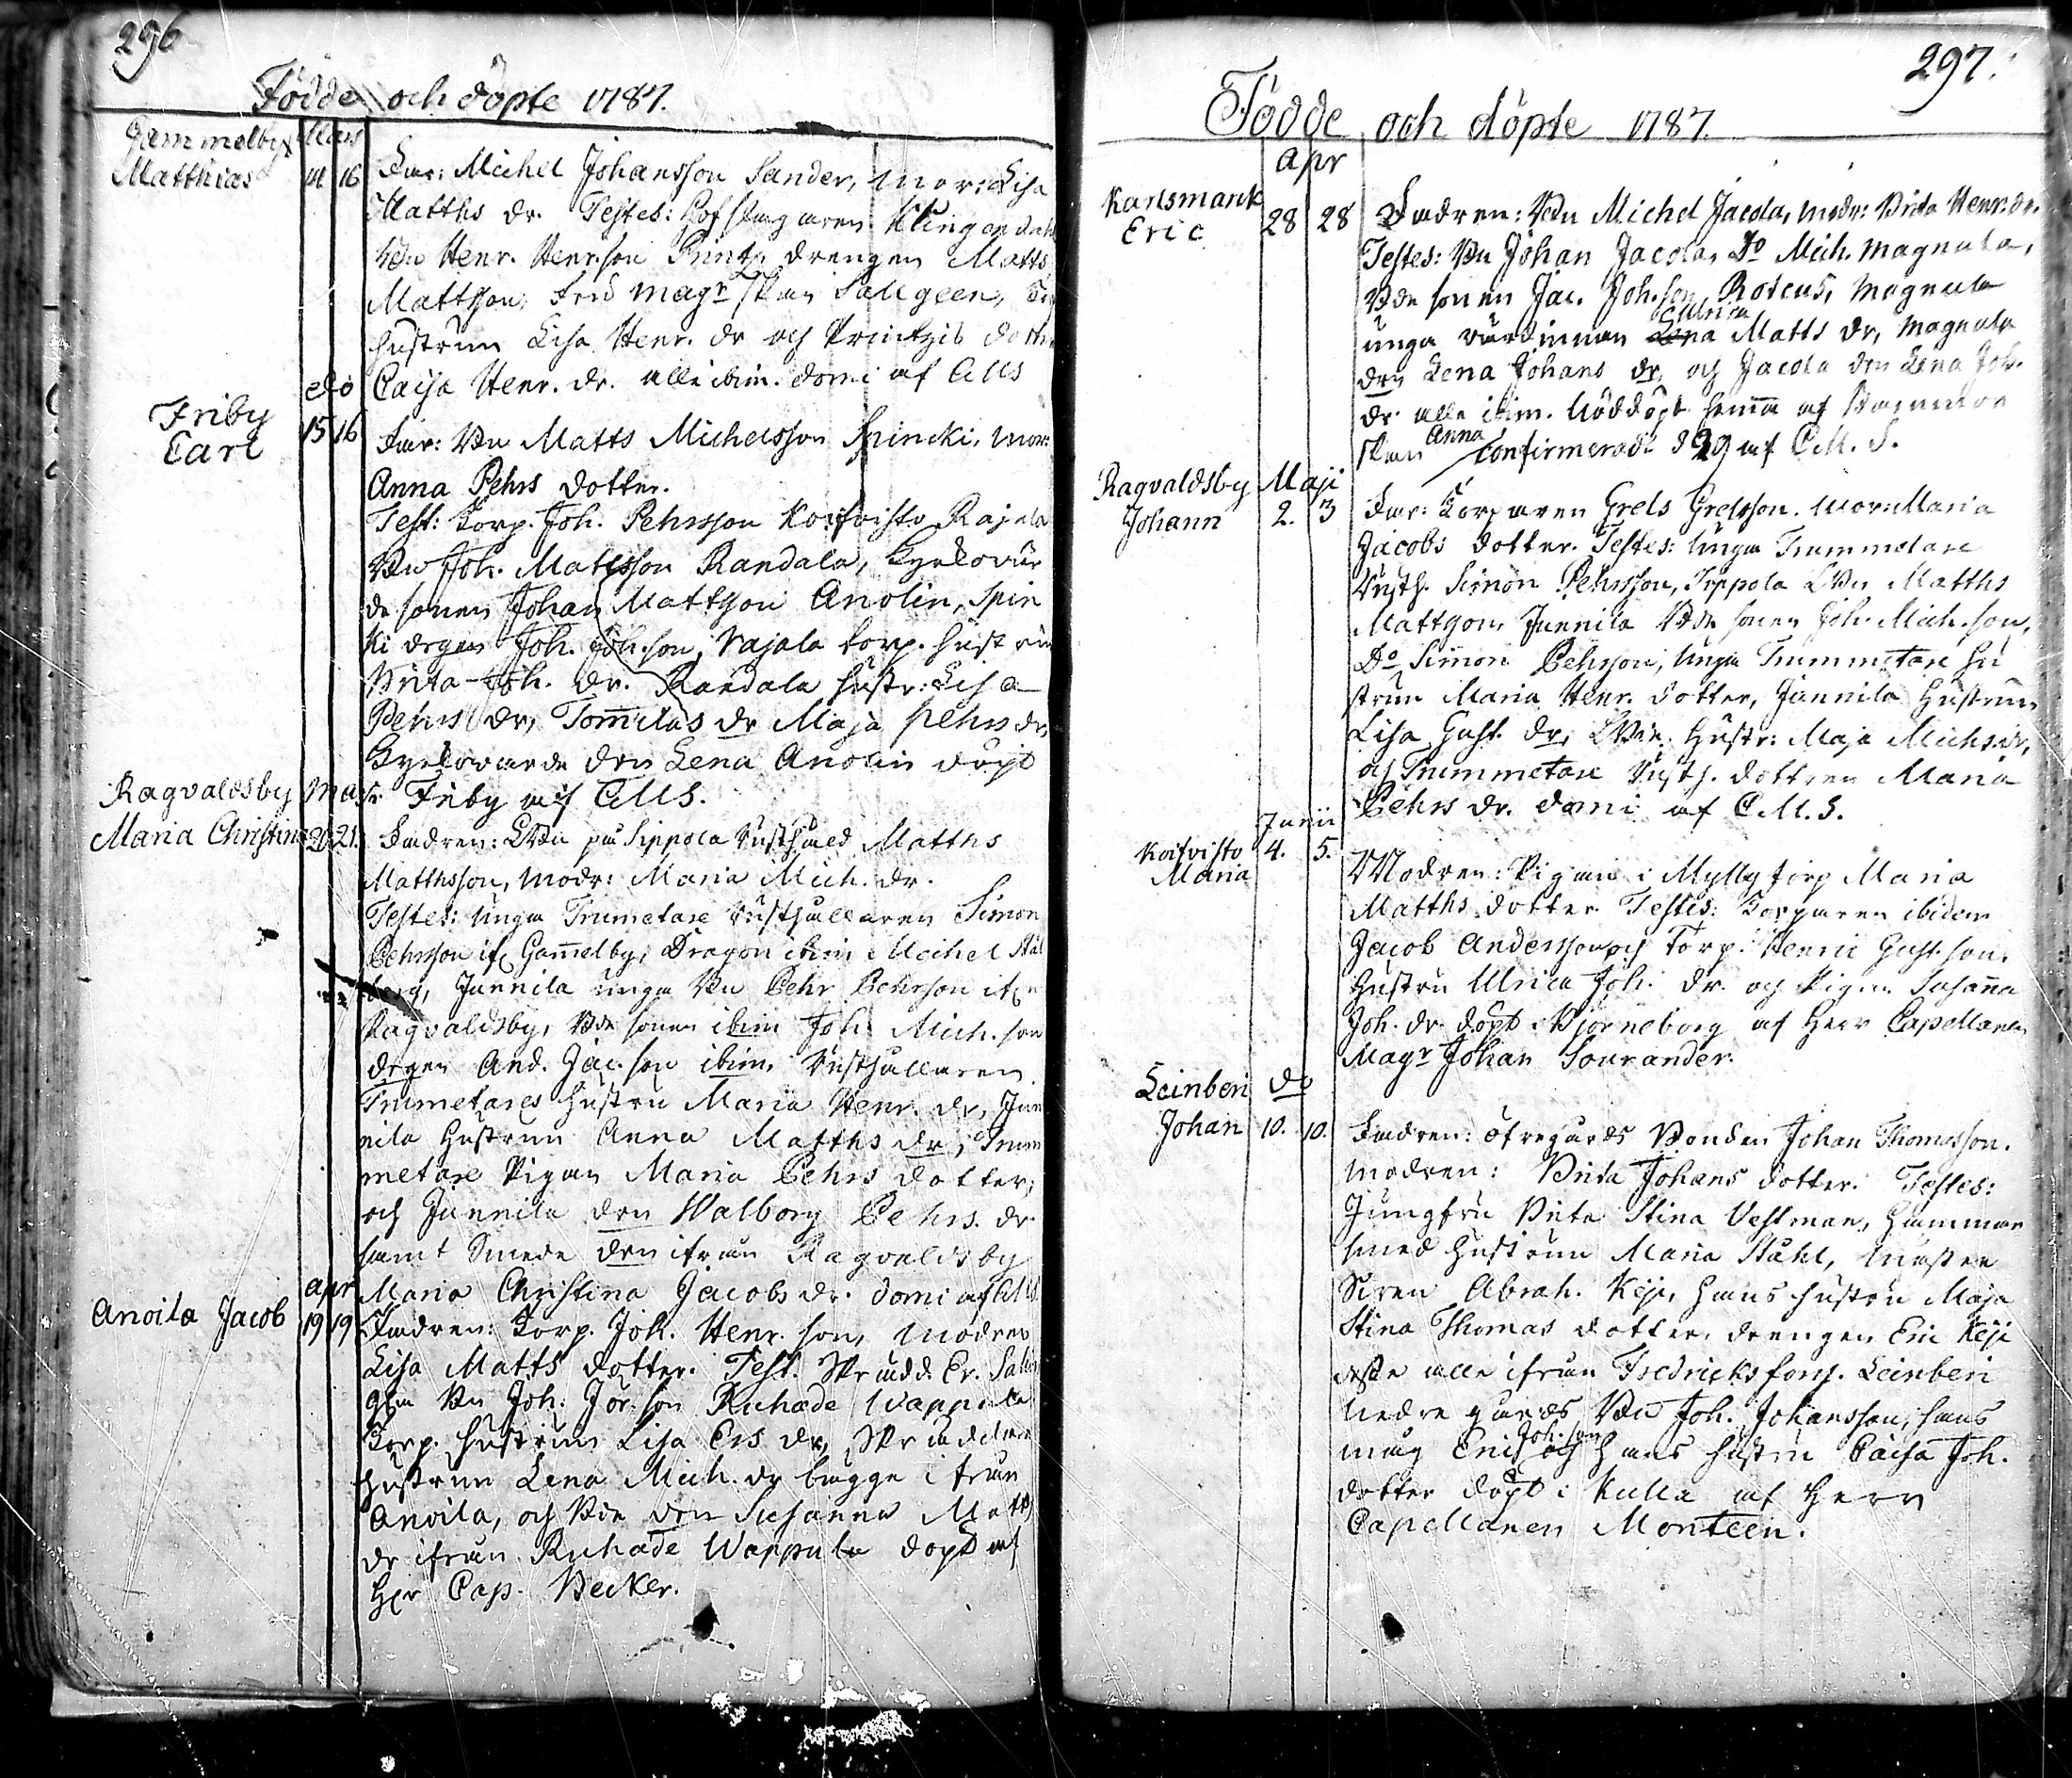 296
Födde och döpte 1787.
Gammelby Mars
Matthias 14 16 Far: Michel Johansson Sander, Mor: Lisa
Matths dr. Testes: Hofslagaren Klingendahl
Bdn Henr. Henr.son Printz, drengen Matts
Mattson, Fru Magr skan Saligeen,
hustrun Lisa Henr. dr och Printzis dottr.
do Caisa Henr. dr. alle ibim. domi af CMS
Friby
Carl 15 16 Far: Bn Matts Michelsson Spincki, mor:
Anna Pehrs dotter.
Test: Torp. Joh. Pehrsson Koifvisto Rajala
Bn Joh. Matsson Randala, Kyrkovär
de sonen Johan Mattson Anolin, Spin
ki drgen Joh. Joh.son, Rajala torp. hustrun
Brita Joh. dr. Randala hustr: Lisa
Pehrs dr, Tommilas dr Maja Pehrs dr,
Kyrkovärde drn Lena Anolin döpt
Ragvaldsby Mars i Friby af CMS.
Maria Christina 20 21. Fadren: LBdn på Sippola Rusthåld Matths
Matthsson, Modr: Maria Mich. dr.
Testes: Unga Trumetare Rusthållaren Simon
Pehrsson if. Gamelby, Dragon ibim Michel Stål
berg, Junnila unga Bn Pehr Pehrson ifrn
Ragvaldsby, Bde sonen ibim Joh. Mich. son
drgen And. Jac. son ibim, Rusthållaren
Trumetares hustru Maria Henr. dr, Jun
nila Hustrun Anna Matths dr, Trum
metare Pigan Maria Pehrs dotter,
och Junnila drn Walborg Pehrs. dr
samt Smede drn ifrån Ragvaldsby
apr Maria Christina Jacobs dr. domi af CMS.
Anoila Jacob 19 19 Fadren: Torp. Joh. Henr. son, Modren
Lisa Matts dotter. Test. Skrädd. Er. Salin
Bn Joh. Jör. son Ruhade Wappula
Torp. hustrun Lisa Ers dr, Skräddare
hustrun Lena Mich. dr bägge ifrån
Anoila, och Bde drn Susanna Matts
dr ifrån Ruhade Wappula döpt af
Hr Cap. Becker.
297.
Födde och döpte 1787
apr
Karlsmark
Eric 28 28 Fadren: Bn Michel Jacola, Modr: Brita Henr: dr.
Testes: Bn Johan Jacola, Do Mich. Magnula,
Bde sonen Jac. Joh. son Roseus, Magnula
Ulrica
unga värdinnan Lena Matts dr, Magnula
drn Lena Johans dr, och Jacola drn Lena Joh.
dr. alle ibim. Nöddöpt hemma af Barnmor
skan Anna Confirmerad d 29 af C.M.S.
Ragvaldsby Maji
Johann 2. 3 Far: Torparen Grels Grelsson. Mor: Maria
Jacobs dotter. Testes: Unga Trummetare
Rusth. Simon Pehrsson, Sippola LBn Matths
Mattson, Junnila Bde sonen Joh. Mich. son,
Do Simon Pehrson, Unga Trummetare hu
strun Maria Henr. dotter, Junnila Hustrun
Lisa Gust. dr, LBn. Hustr: Maja Michs. dr,
och Trummetare Rusth. dottren Maria
Pehrs dr. domi af C.M.S.
Junii
Koifvisto 4. 5.
Maria Modren: Pigan i Mylly torp Maria
Matths dotter Testis: Torparen ibidem
Jacob Andersson och Torp. Henric Gust. son,
Hustru Ulrica Joh. dr. och Pigan Susanna
Joh. dr. döpt i Björneborg af Herr Capellanen
Magr Johan Sourander.
Leinberi do
Johan 10. 10. Fadren: öfregårds Bonden Johan Thomasson.
Modren: Brita Johans dotter. Testes:
Jungfru Brita Stina Vestman, Hammar
smed hustrun Maria Ståhl, Mäster
Svren Abrah. Kije, hans hustru Maja
Stina Thomas dotter, drengen Eric Kije
desse alle ifrån Fredricksfors. Leinberi
Nedre gårds Bn Joh. Johansson, hans
Joh. son
måg Eric och hans hustru Caisa Joh.
dotter döpt i Kulla af Herr
Capellanen Monteen.